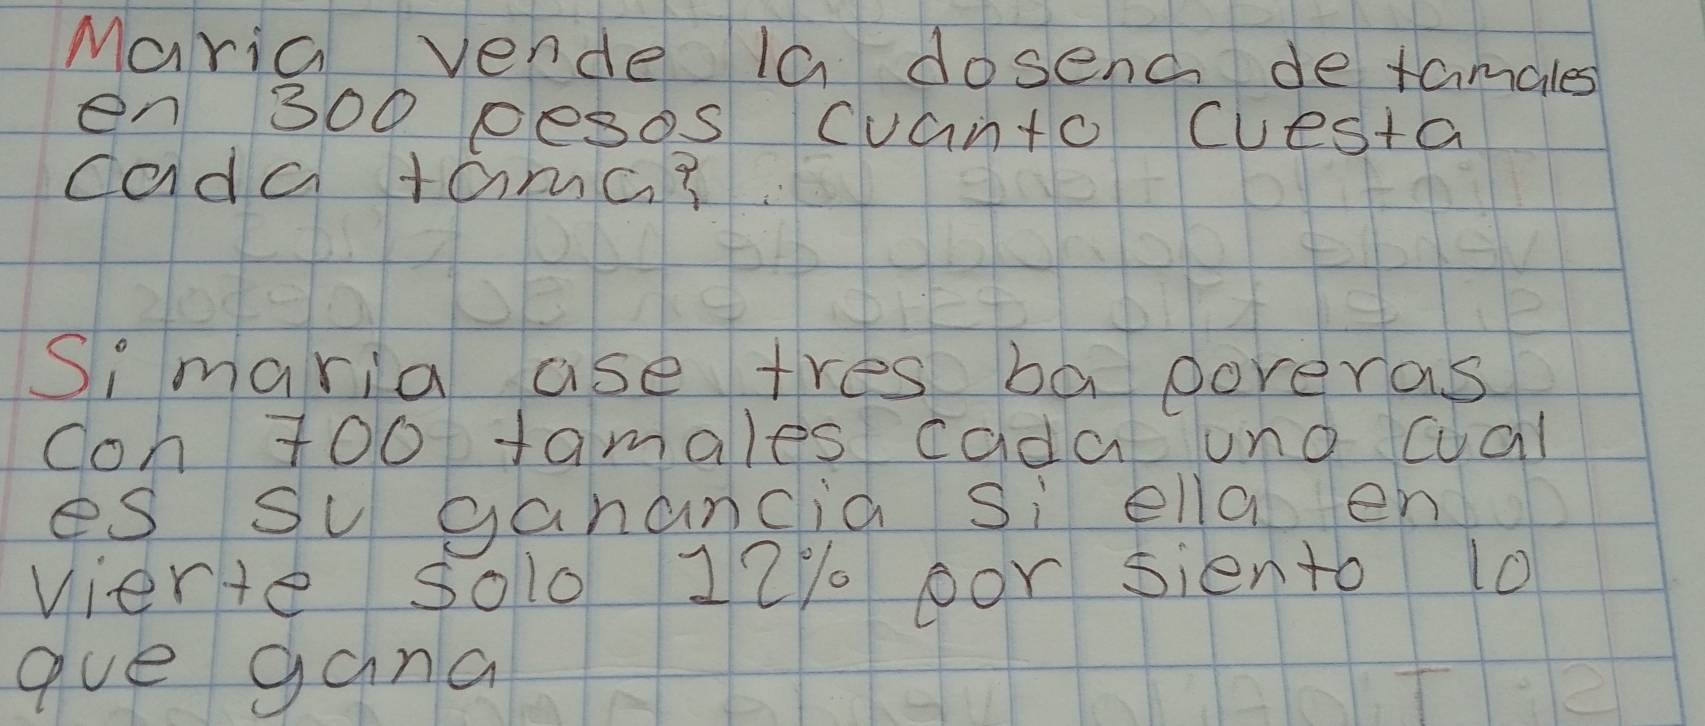 Maria vende la dosena de tamales
en 300 pesos cuanto cuesta
cada tama?
Si maria ase tres ba poreras
con 700 tamales cada uno cual
es su ganancia si ella en
vierte solo 12% por siento lo
que gana